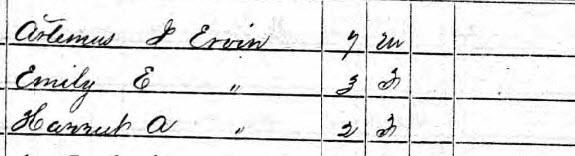 Artemus J Ervin 7 m
Emily E " 3 F
Harriet A " 2 F